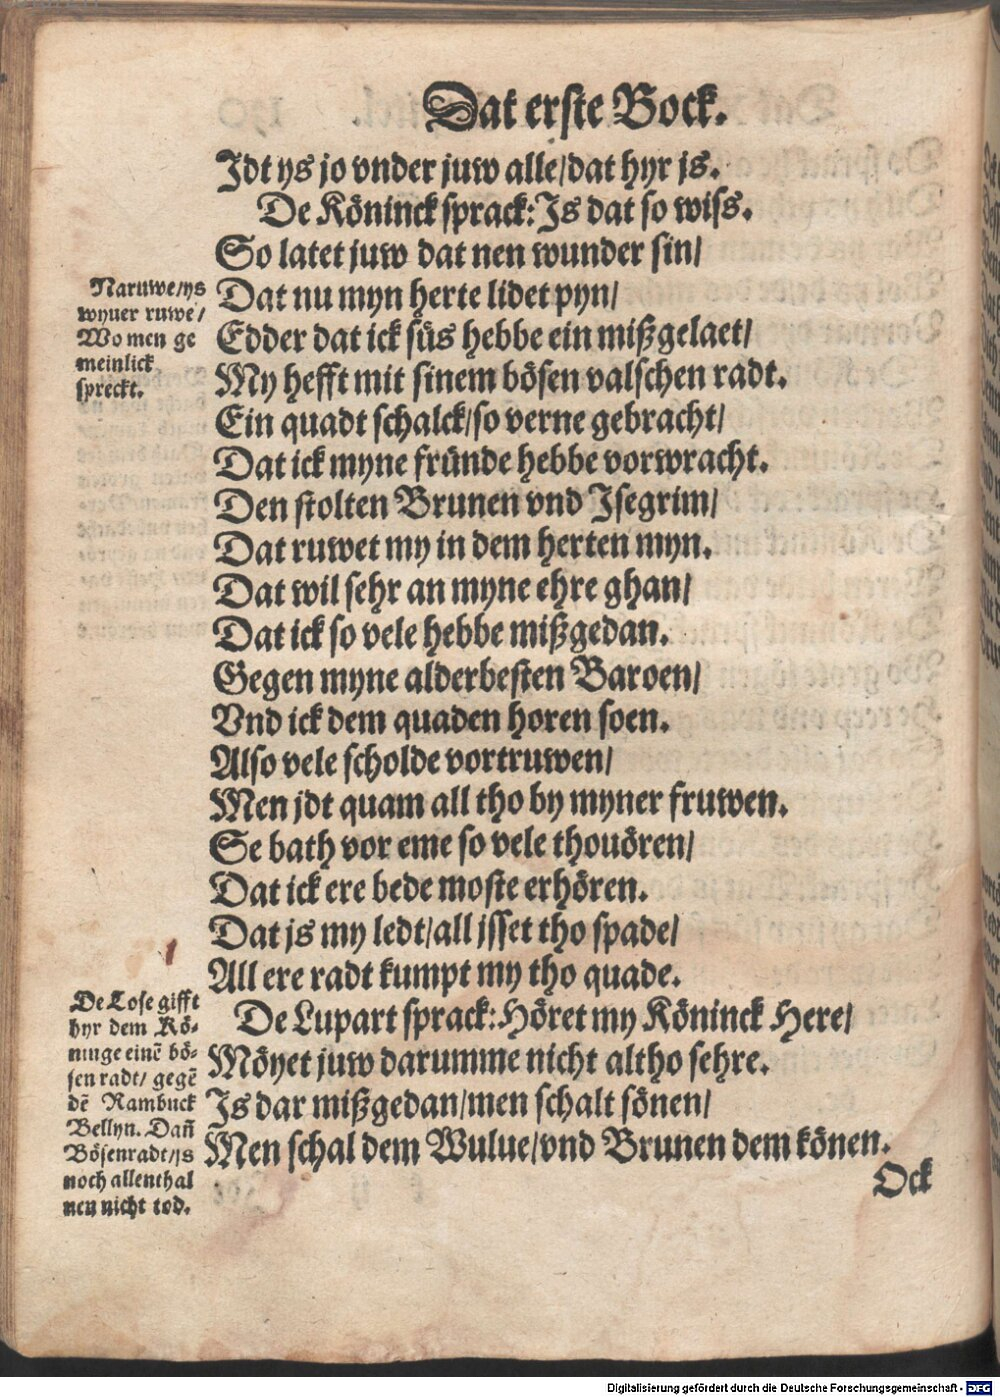 Dat erste Bock.
Jdt ys jo vnder juw alle/dat hyr js.
De Köninck sprack: Js dat so wiss.
So latet juw dat nen wunder sin/
Dat nu myn herte lidet pyn/
Edder dat ick süs hebbe ein mißgelaet/
My hefft mit sinem bösen valschen radt.
Ein quadt schalck/so verne gebracht/
Dat ick myne fründe hebbe vorwracht.
Den stolten Brunen vnd Jsegrim/
Dat ruwet my in dem herten myn.
Dat wil sehr an myne ehre ghan/
Dat ick so vele hebbe mißgedan.
Gegen myne alderbesten Baroen/
Vnd ick dem quaden horen soen.
Also vele scholde vortruwen/
Men jdt quam all tho by myner fruwen.
Se bath vor eme so vele thouören/
Dat ick ere bede moste erhören.
Dat js my ledt/all jsset tho spade/
All ere radt kumpt my tho quade.
De Lupart sprack: Höret my Köninck Here/
Möyet juw darumme nicht altho sehre.
Js dar mißgedan/men schalt sönen/
Men schal dem Wulue/vnd Brunen dem könen.
Ock
Naruwe/ys
wyuer ruwe/
Wo men ge
meinlick
spreckt.
De Lose gifft
hyr dem Kö-
ninge einẽ bö-
sen radt/ gegẽ
dẽ Rambuck
Bellyn. Dañ
Bösenradt/js
noch allenthal
nen nicht tod.
Digitalisierung gefördert durch die Deutsche Forschungsgemeinschaft - DFG